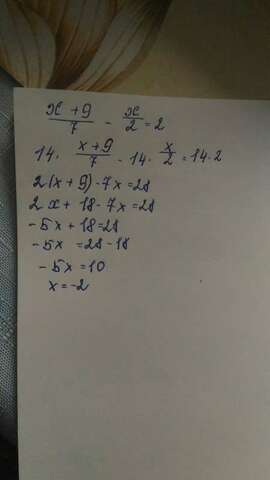 (x + 9)/7 - x/2 = 2
14 · (x + 9)/7 - 14 · x/2 = 14 · 2
2(x + 9) - 7x = 28
2x + 18 - 7x = 28
-5x + 18 = 28
-5x = 28 - 18
-5x = 10
x = -2